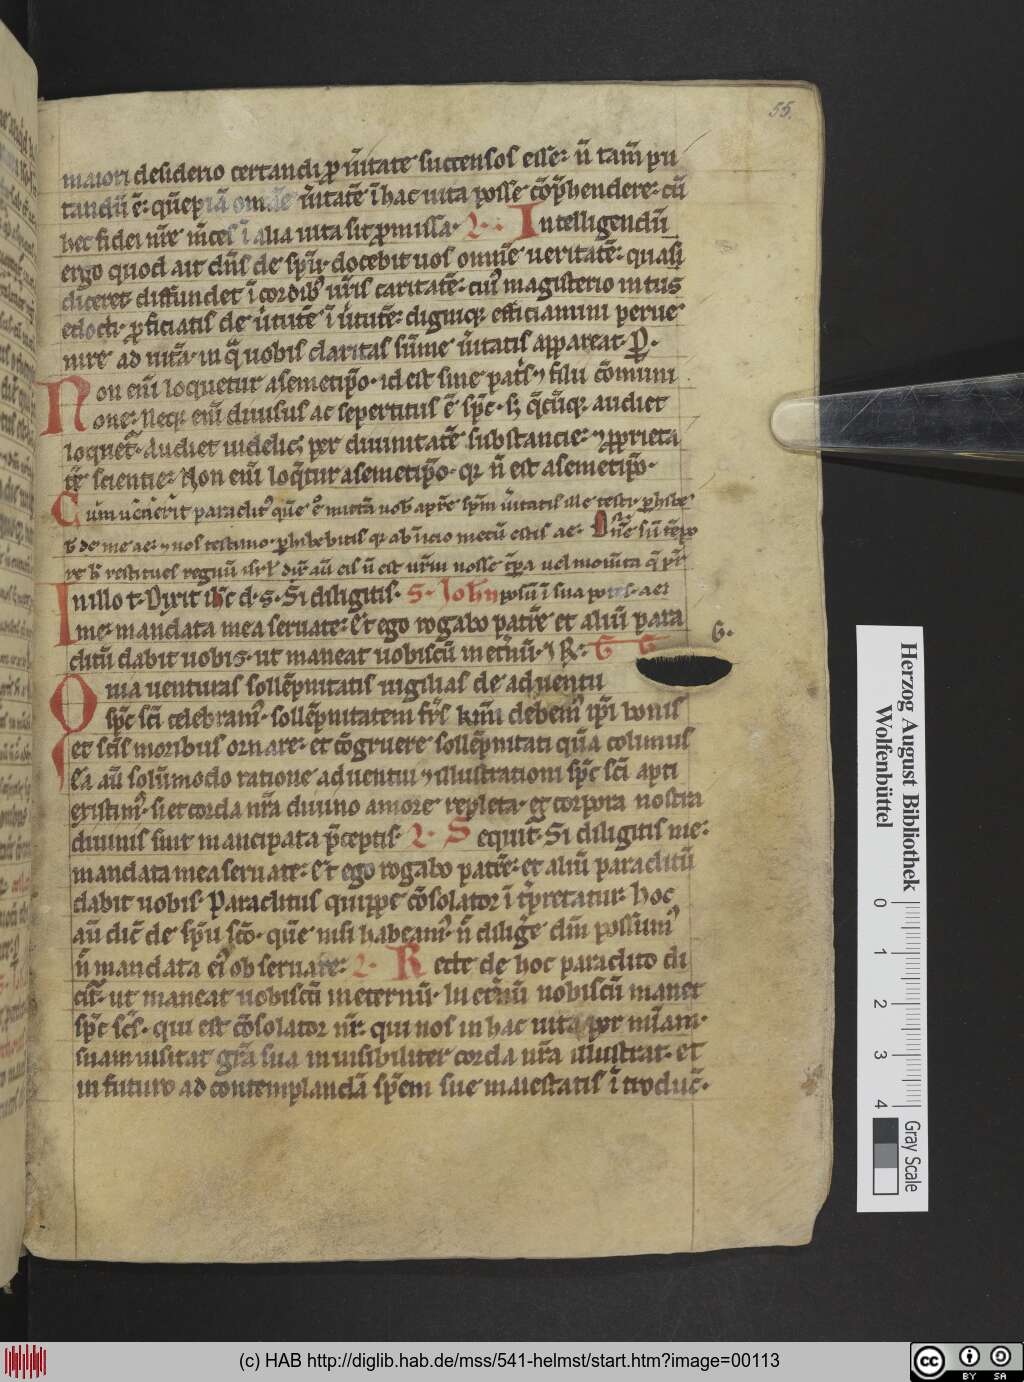 55.
maiori desiderio certandi ꝓ ūitate succensos esse· ñ tam̄ pu
tandū ē· qm̄ uitatē ī hac uita posse cōp̄hendere· cū
hec fidei nr̄e ī alia uita sit ꝓmissa· L· Intelligendū
ergo quod ait dn̄s de sp̄u· docebit uos omnē ueritatē· quasi
diceret diffundet ī cordib; ur̄is caritatē· cui9 magisterio intus
edocti· ꝓficiatis de u̇tutē ī u̇tutē· digniq; efficiamini perue
nire ad uitā· in q̄ uobis claritas sūme ūitatis appareat· P̄·
Non eni̅ loquetur asemetip̄o· id est sine pat̄s ⁊ filii cōmuni
one· Neq; eni̅ diuisus ac sepertitus ē sp̄c· s; q̄cūq; audiet
loquet̄· Audiet uidelic; per diuinitatē substancie· ⁊ ꝓprieta
tē scientie· Non eni̅ loq̄tur asemetip̄o· qr ñ est asemetip̄o·
Cum uēnerit paraclit9 quē e9 mittā uob̄ a pr̄e sp̄m ūitatis ille testi· ꝑhibe
b̄ de me ae· ⁊ uos testimo· ꝑhibebitis qr ab īicio mecū estis ae· Dn̄e si ī tēpo
re h̄ restitues regnū isrl̄ dix̄ au̅ eis ñ est ur̄m nosse tp̄a uel momta q̄ pr̄
In illo t· Dixit ih̄c d· s· Si diligitis· S· Joh̄n ae
me· mandata mea seruate· Et ego rogabo patrē et aliū para
clitū dabit uobis· ut maneat uobiscū in etn̄ū· ⁊ R· G G G·
Quia uenturas sollēpnitatis uigilias de aduentu
sp̄c sc̄i celebram9· sollēpnitatem fr̄s km̄i debem9 ip̄i bonis
et sc̄is moribus ornare· et cōgruere sollēpnitati quā colimus
Ea au̅ solūmodo ratione aduentui ⁊ illustrationi sp̄c sc̄i apti
existim9· si et corda nr̄a diuino amore repleta· et corpora nostra
diuinis sint mancipata p̄ceptis· L· Sequit̄· Si diligitis me·
mandata mea seruate· Et ego rogabo patrē· et aliū paraclitū
dabit uobis· Paraclitus quippe cōsolator ī tp̄retatur· hoc
au̅ dic̄ de sp̄u sc̄o· quē nisi habeam9· ñ diliḡe dm̄ possūm9
ñ mandata ei9 obseruare· L· Recte de hoc paraclito di
cit̄· ut maneat uobiscū ineternū· In etn̄ū uobiscū manet
sp̄c sc̄s· qui est cōsolator nr̄· qui nos in hac uita ꝓpt̄ miam·
suam uisitat gr̄a sua inuisibiliter corda nr̄a illustrat· et
in futuro ad contemplandā sp̄em sue maiestatis ī troduc̄·
Herzog August Bibliothek
Wolfenbüttel
0 1 2 3 4
Gray Scale
(c) HAB http://diglib.hab.de/mss/541-helmst/start.htm?image=00113
cc BY SA